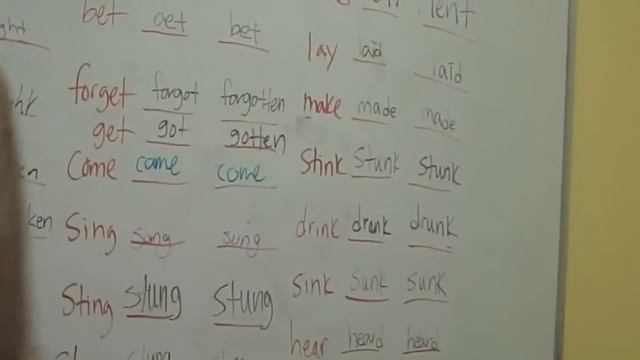 ght
bet bet
forget forgot forgotten
get got gotten
Come came come
ken
Sing sung sung
Sting stung stung
slung
lent
lay laid laid
make made made
Stink Stunk Stunk
drink drunk drunk
sink sunk sunk
hear heard heard